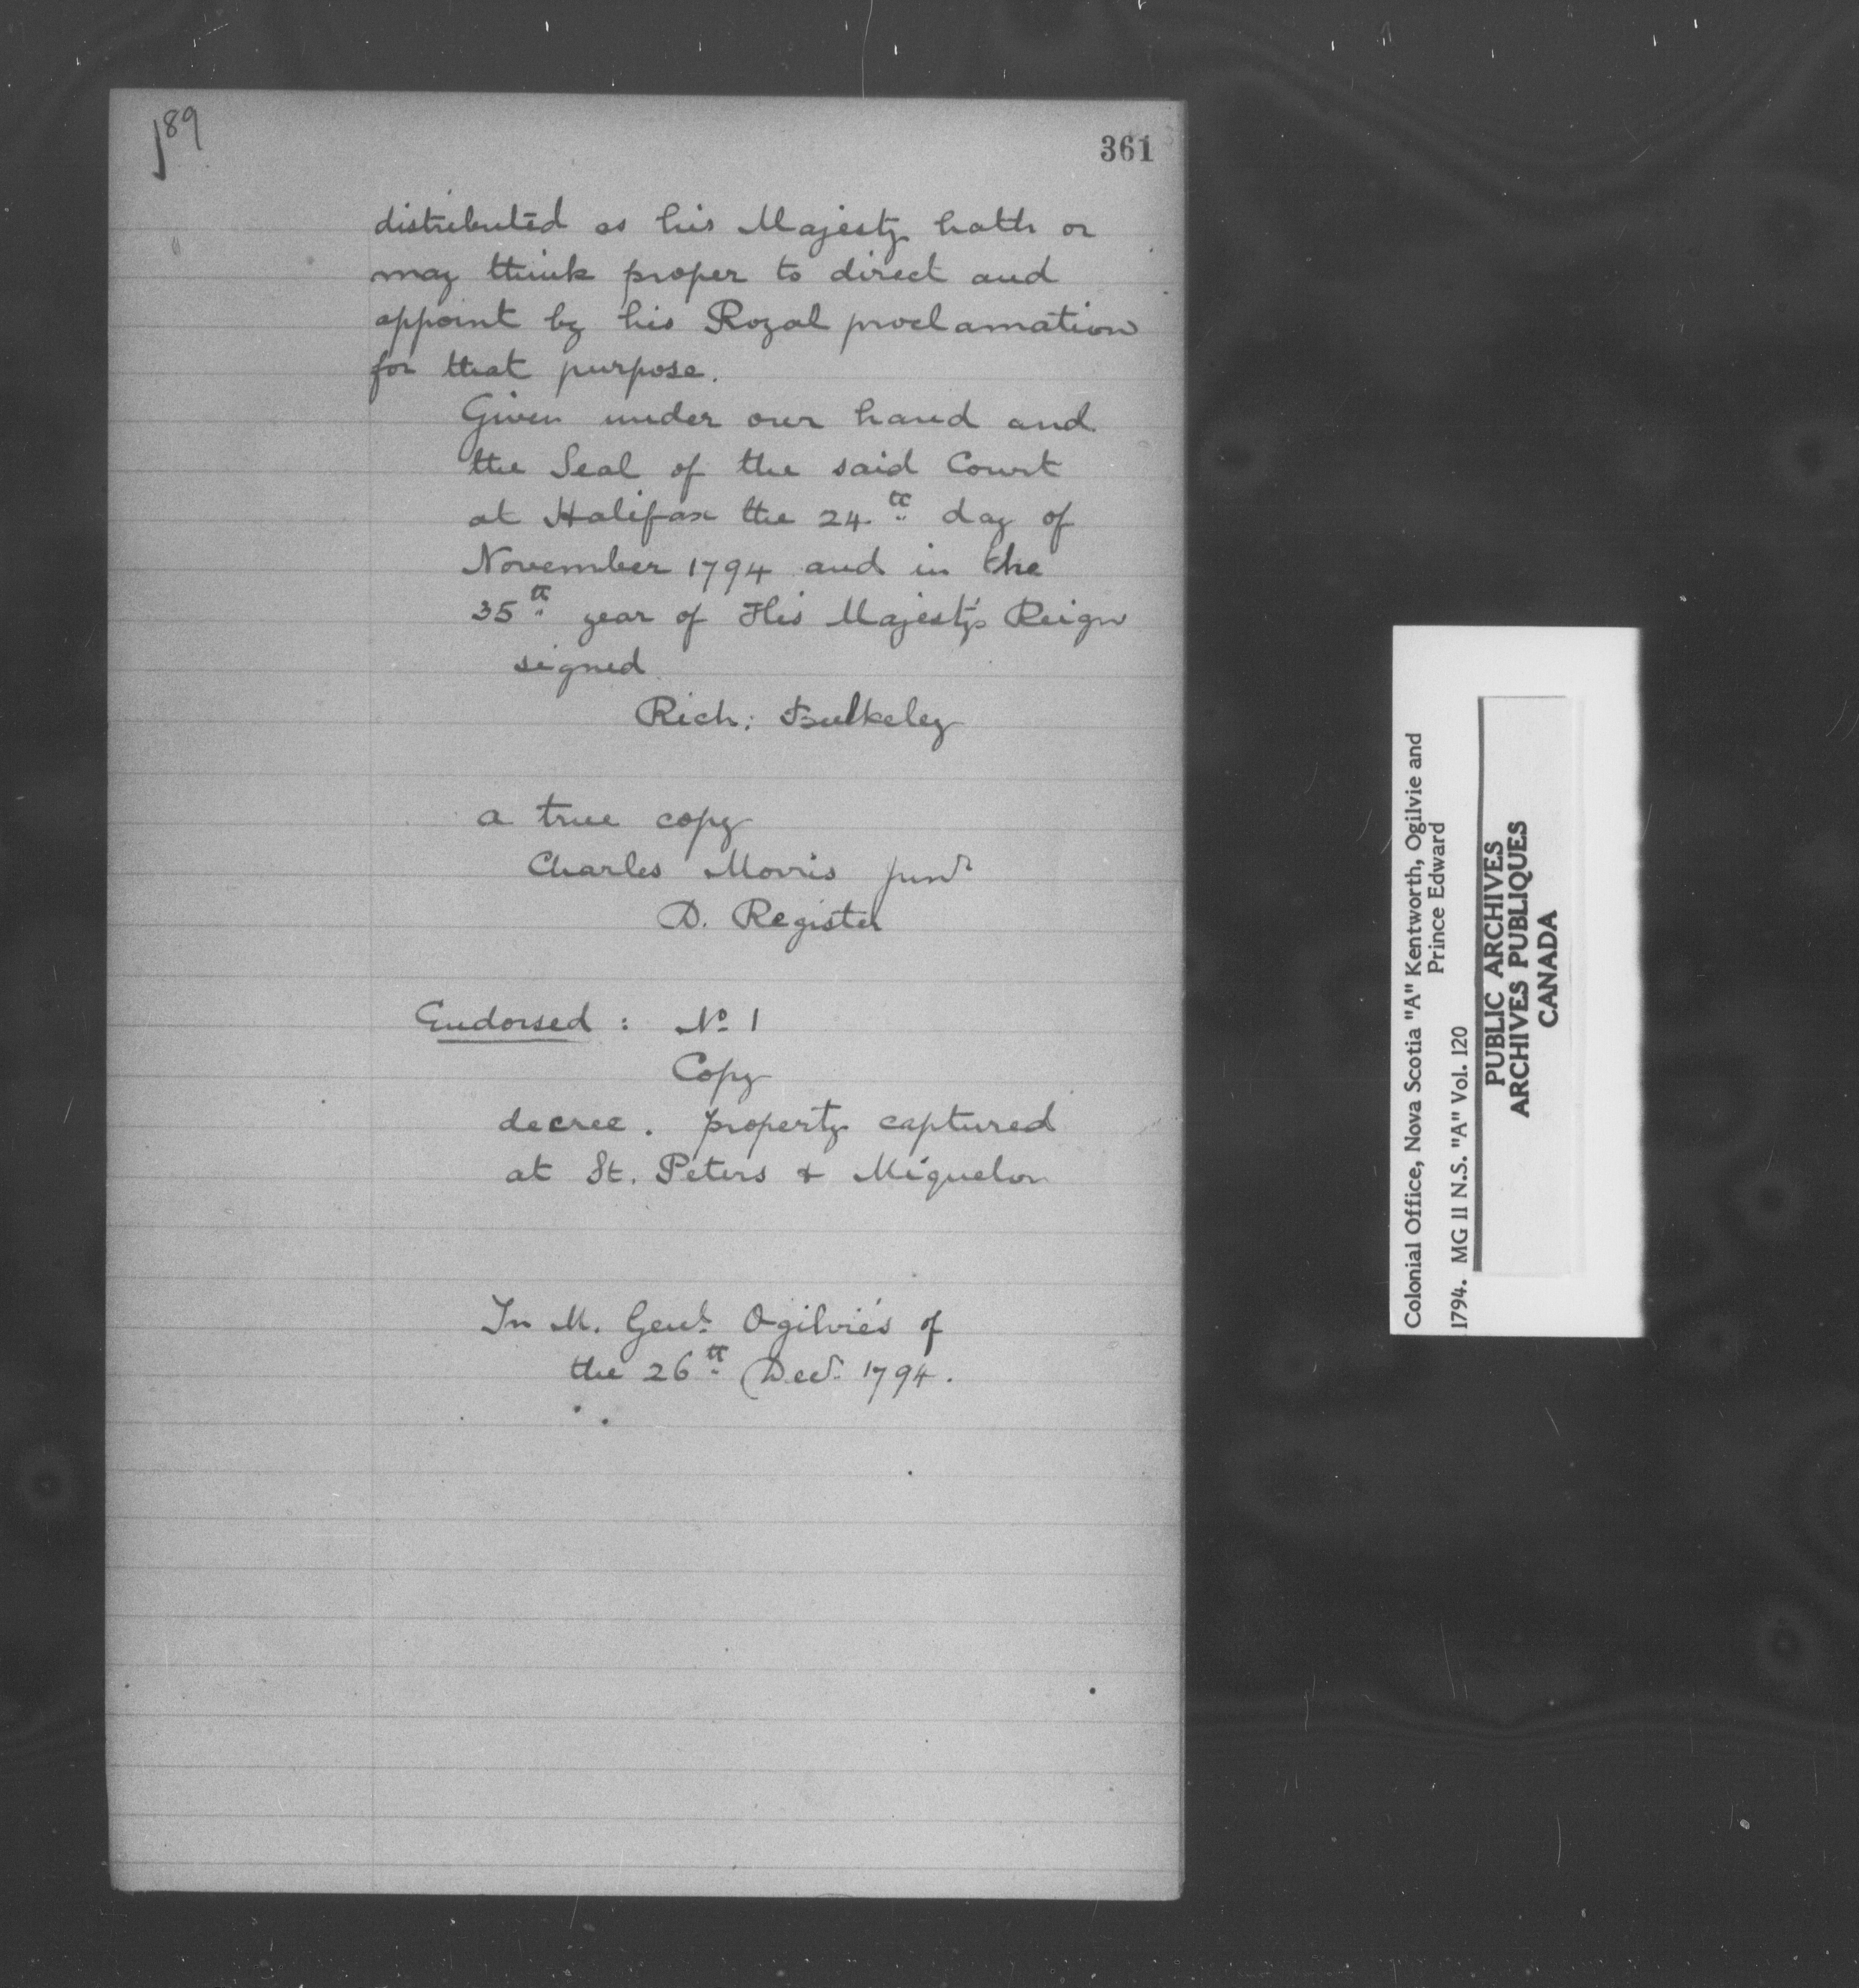 189
361
distributed as his Majesty hath or
may think proper to direct and
appoint by his Royal proclamation
for that purpose.
Given under our hand and
the Seal of the said Court
at Halifax the 24th day of
November 1794 and in the
35th year of His Majesty's Reign
signed
Rich: Bulkeley
a true copy
Charles Morris junr
D. Register
Endorsed : No 1
Copy
decree. property captured
at St. Peters & Miquelon
In M. Genl. Ogilvie's of
the 26th Decr. 1794.
Colonial Office, Nova Scotia "A" Kentworth, Ogilvie and
Prince Edward
1794. MG 11 N.S. "A" Vol. 120
PUBLIC ARCHIVES
ARCHIVES PUBLIQUES
CANADA